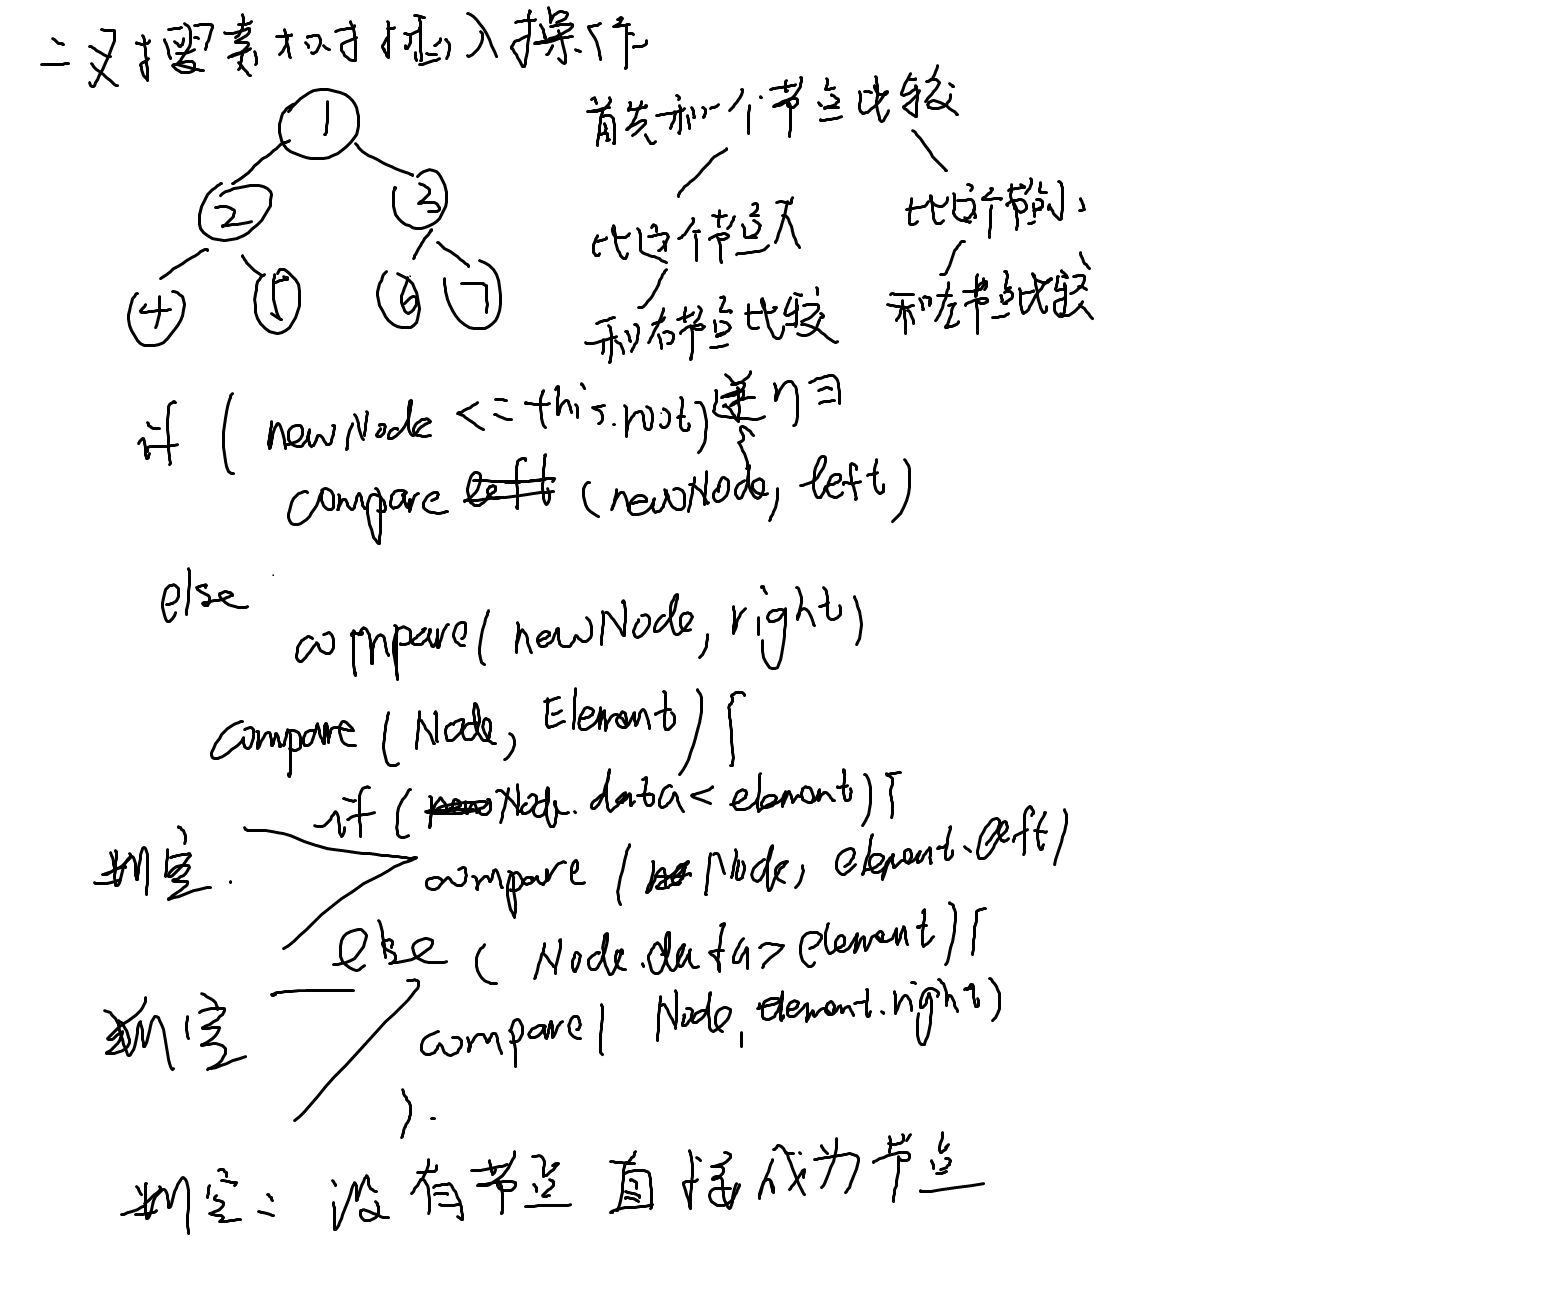 二叉搜索树插入操作
1
首先和一个节点比较
2 3
比这个节点大 比这个节点小
4 5 6 7
和右节点比较 和左节点比较
if ( newNode <= this.root) {
compare (newNode, left)
else
compare( newNode, right)
compare ( Node, Element) {
if ( Node.data < element) {
判空. compare ( Node, element.left)
else ( Node.data > element) {
判空 compare( Node, element.right)
).
判空: 没有节点 直接成为节点